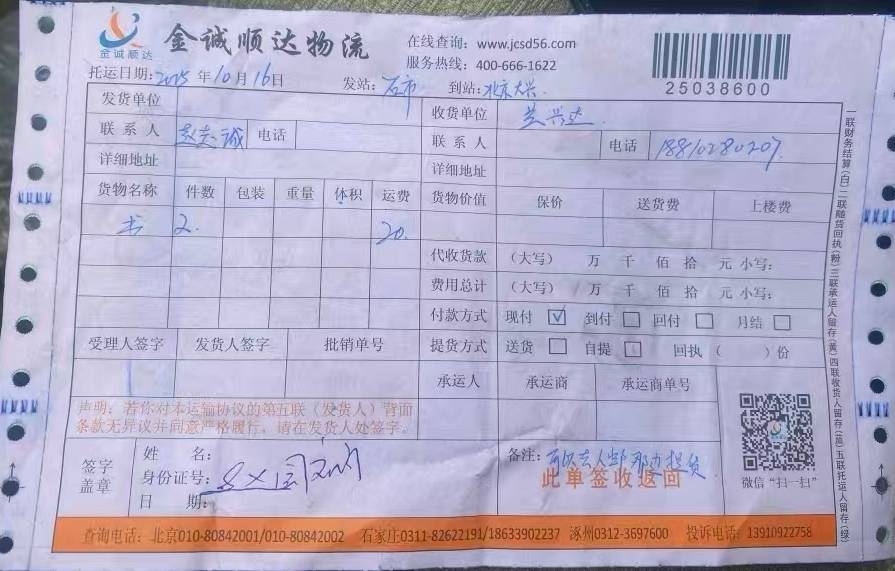 金诚顺达
金诚顺达物流
在线查询：www.jcsd56.com
服务热线：400-666-1622
25038600
托运日期：2025年10月16日 发站：石市 到站：北京大兴
发货单位 收货单位 兴达
联系人 诚 电话 联系人 电话 18810280207
详细地址 详细地址
货物名称 件数 包装 重量 体积 运费 货物价值 保价 送货费 上楼费
书 2. 20.
代收货款 （大写） 万 仟 佰 拾 元 小写：
费用总计 （大写） 万 仟 佰 拾 元 小写：
付款方式 现付 ☑ 到付 □ 回付 □ 月结 □
受理人签字 发货人签字 批销单号 提货方式 送货 □ 自提 □ 回执（ ）份
承运人 承运商 承运商单号
声明：若你对本运输协议的第五联（发货人）背面
条款无异议并同意严格履行，请在发货人处签字。
签字
盖章
姓 名：
身份证号：
日 期：
备注：
此单签收返回
微信“扫一扫”
一联财务结算（白）二联随货回执（粉）三联承运人留存（黄）四联收货人留存（蓝）五联托运人留存（绿）
查询电话：北京010-80842001/010-80842002 石家庄0311-82622191/18633902237 涿州0312-3697600 投诉电话：13910922758